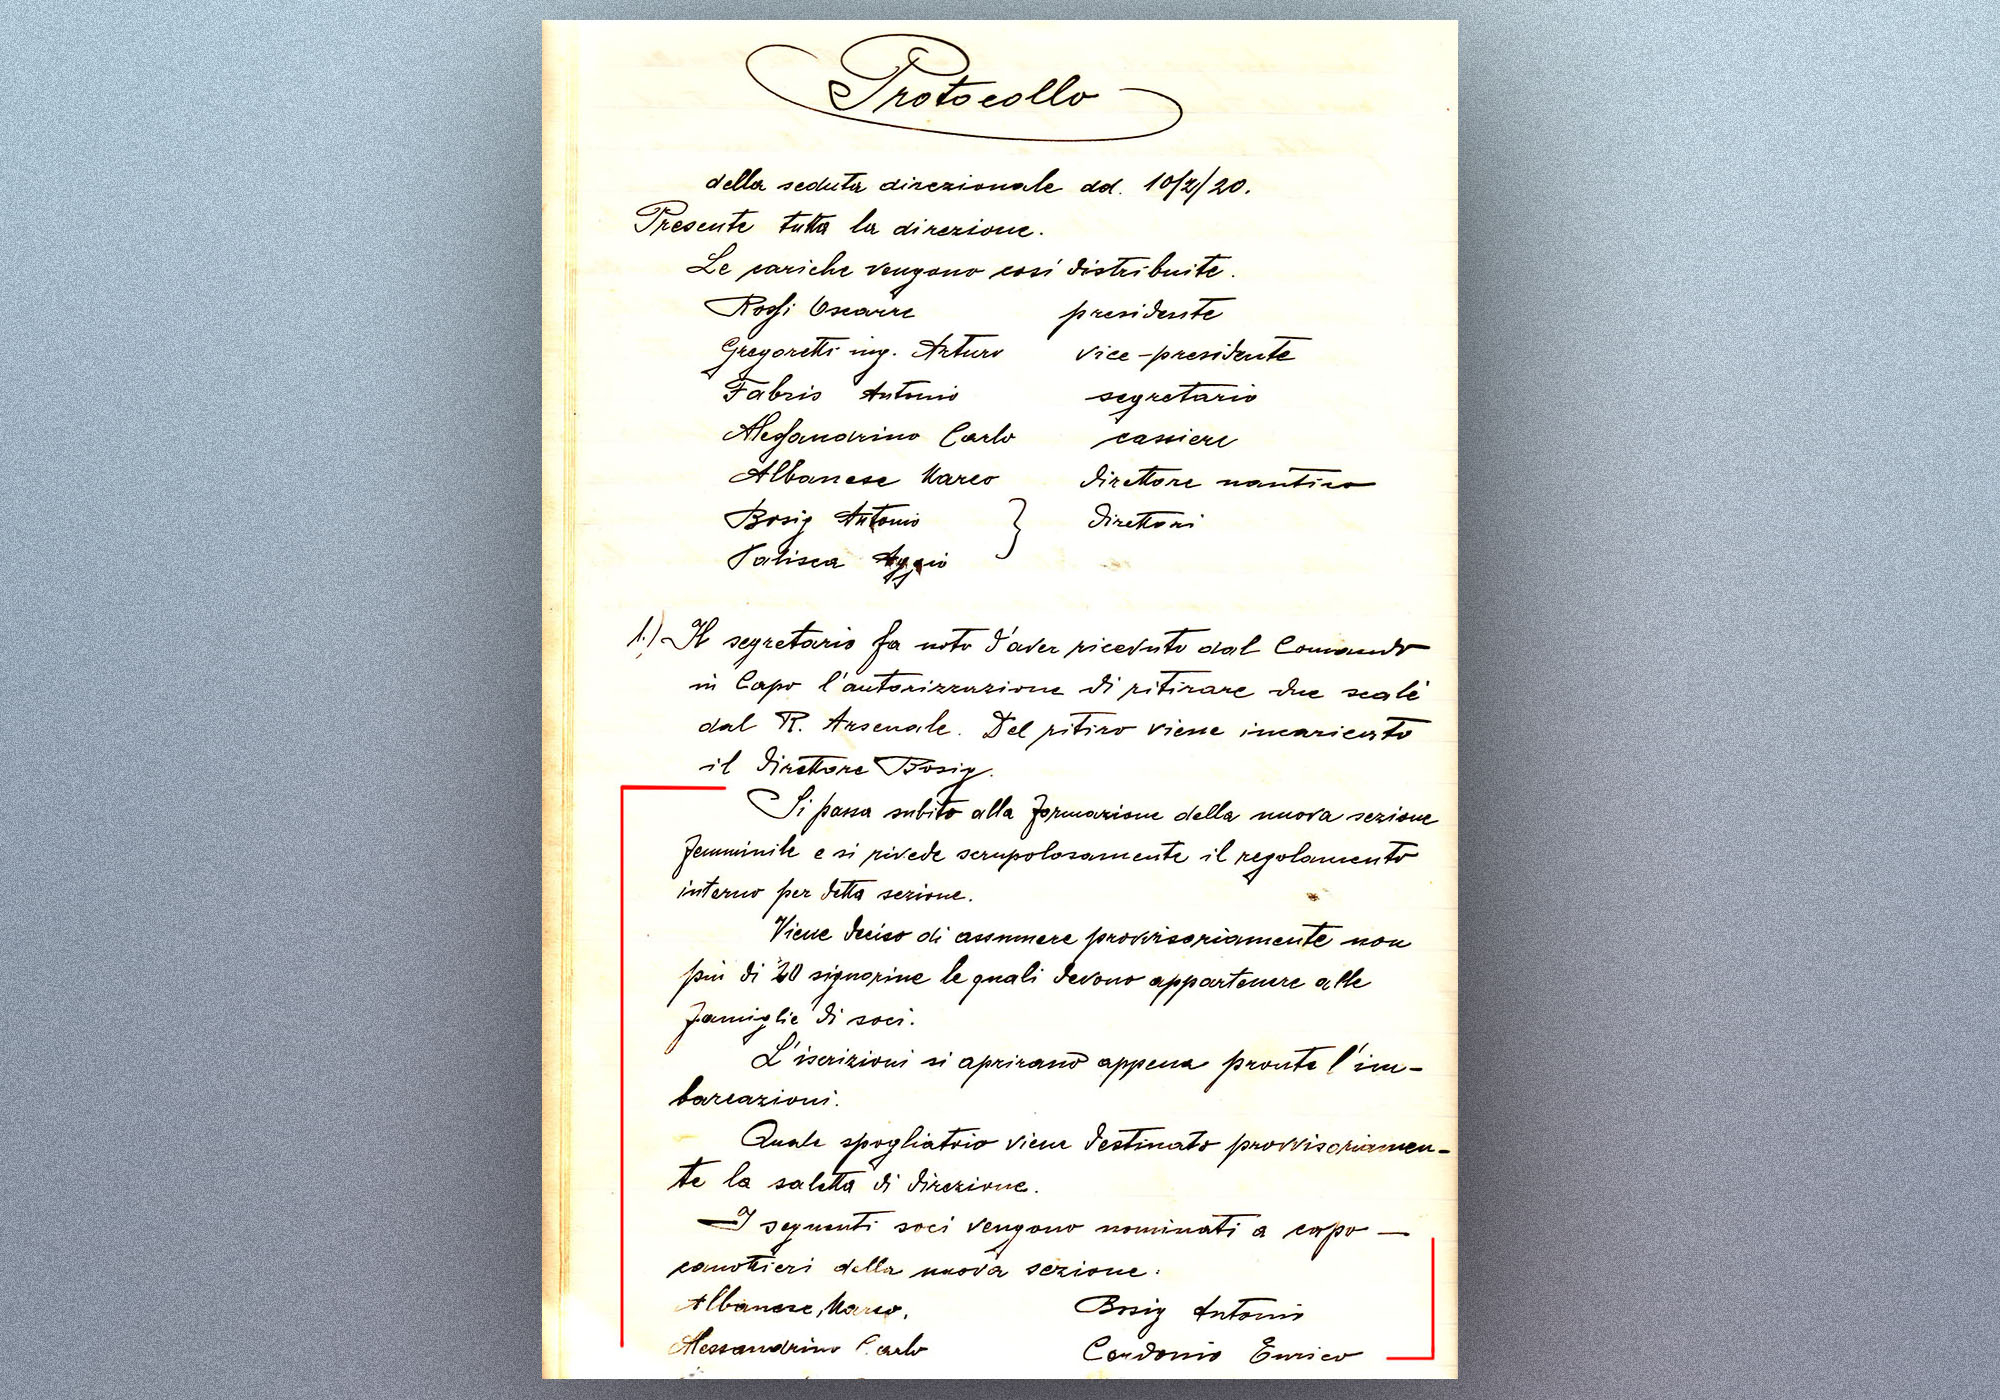 Protocollo
della seduta direzionale dd. 10/2/20.
Presente tutta la direzione.
Le cariche vengono così distribuite.
Rossi Oscarre presidente
Gregoretti ing. Arturo vice-presidente
Fabris Antonio segretario
Alessandrino Carlo cassiere
Albanese Marco direttore nautico
Bosig Antonio } direttori
Aggio
1.) Il segretario fa noto d'aver ricevuto dal Comando
in Capo l'autorizzazione di ritirare due scalè
dal R. Arsenale. Del ritiro viene incaricato
il direttore Bosig.
Si passa subito alla formazione della nuova sezione
femminile e si rivede scrupolosamente il regolamento
interno per detta sezione.
Viene deciso di assumere provvisoriamente non
più di 20 signorine le quali devono appartenere alle
famiglie di soci.
L'iscrizioni si aprirano appena pronte l'im-
barcazioni.
Quale spogliatoio viene destinato provvisoriamen-
te la saletta di direzione.
I seguenti soci vengono nominati a capo —
canottieri della nuova sezione:
Albanese, Marco, Bosig Antonio
Alessandrino Carlo Cardonio Enrico